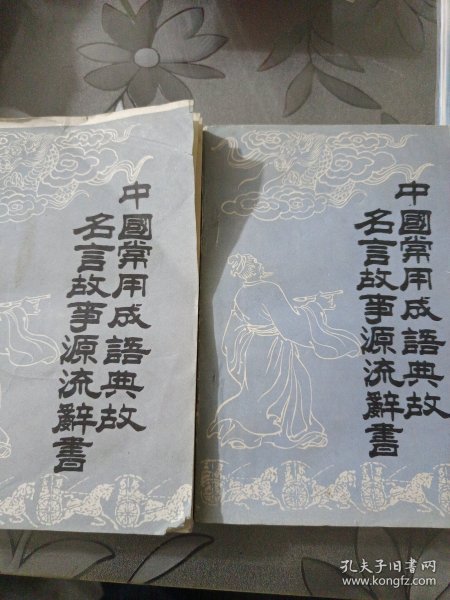 中國常用成語典故
名言故事源流辭書
中國常用成語典故
名言故事源流辭書
孔夫子旧书网
www.kongfz.com